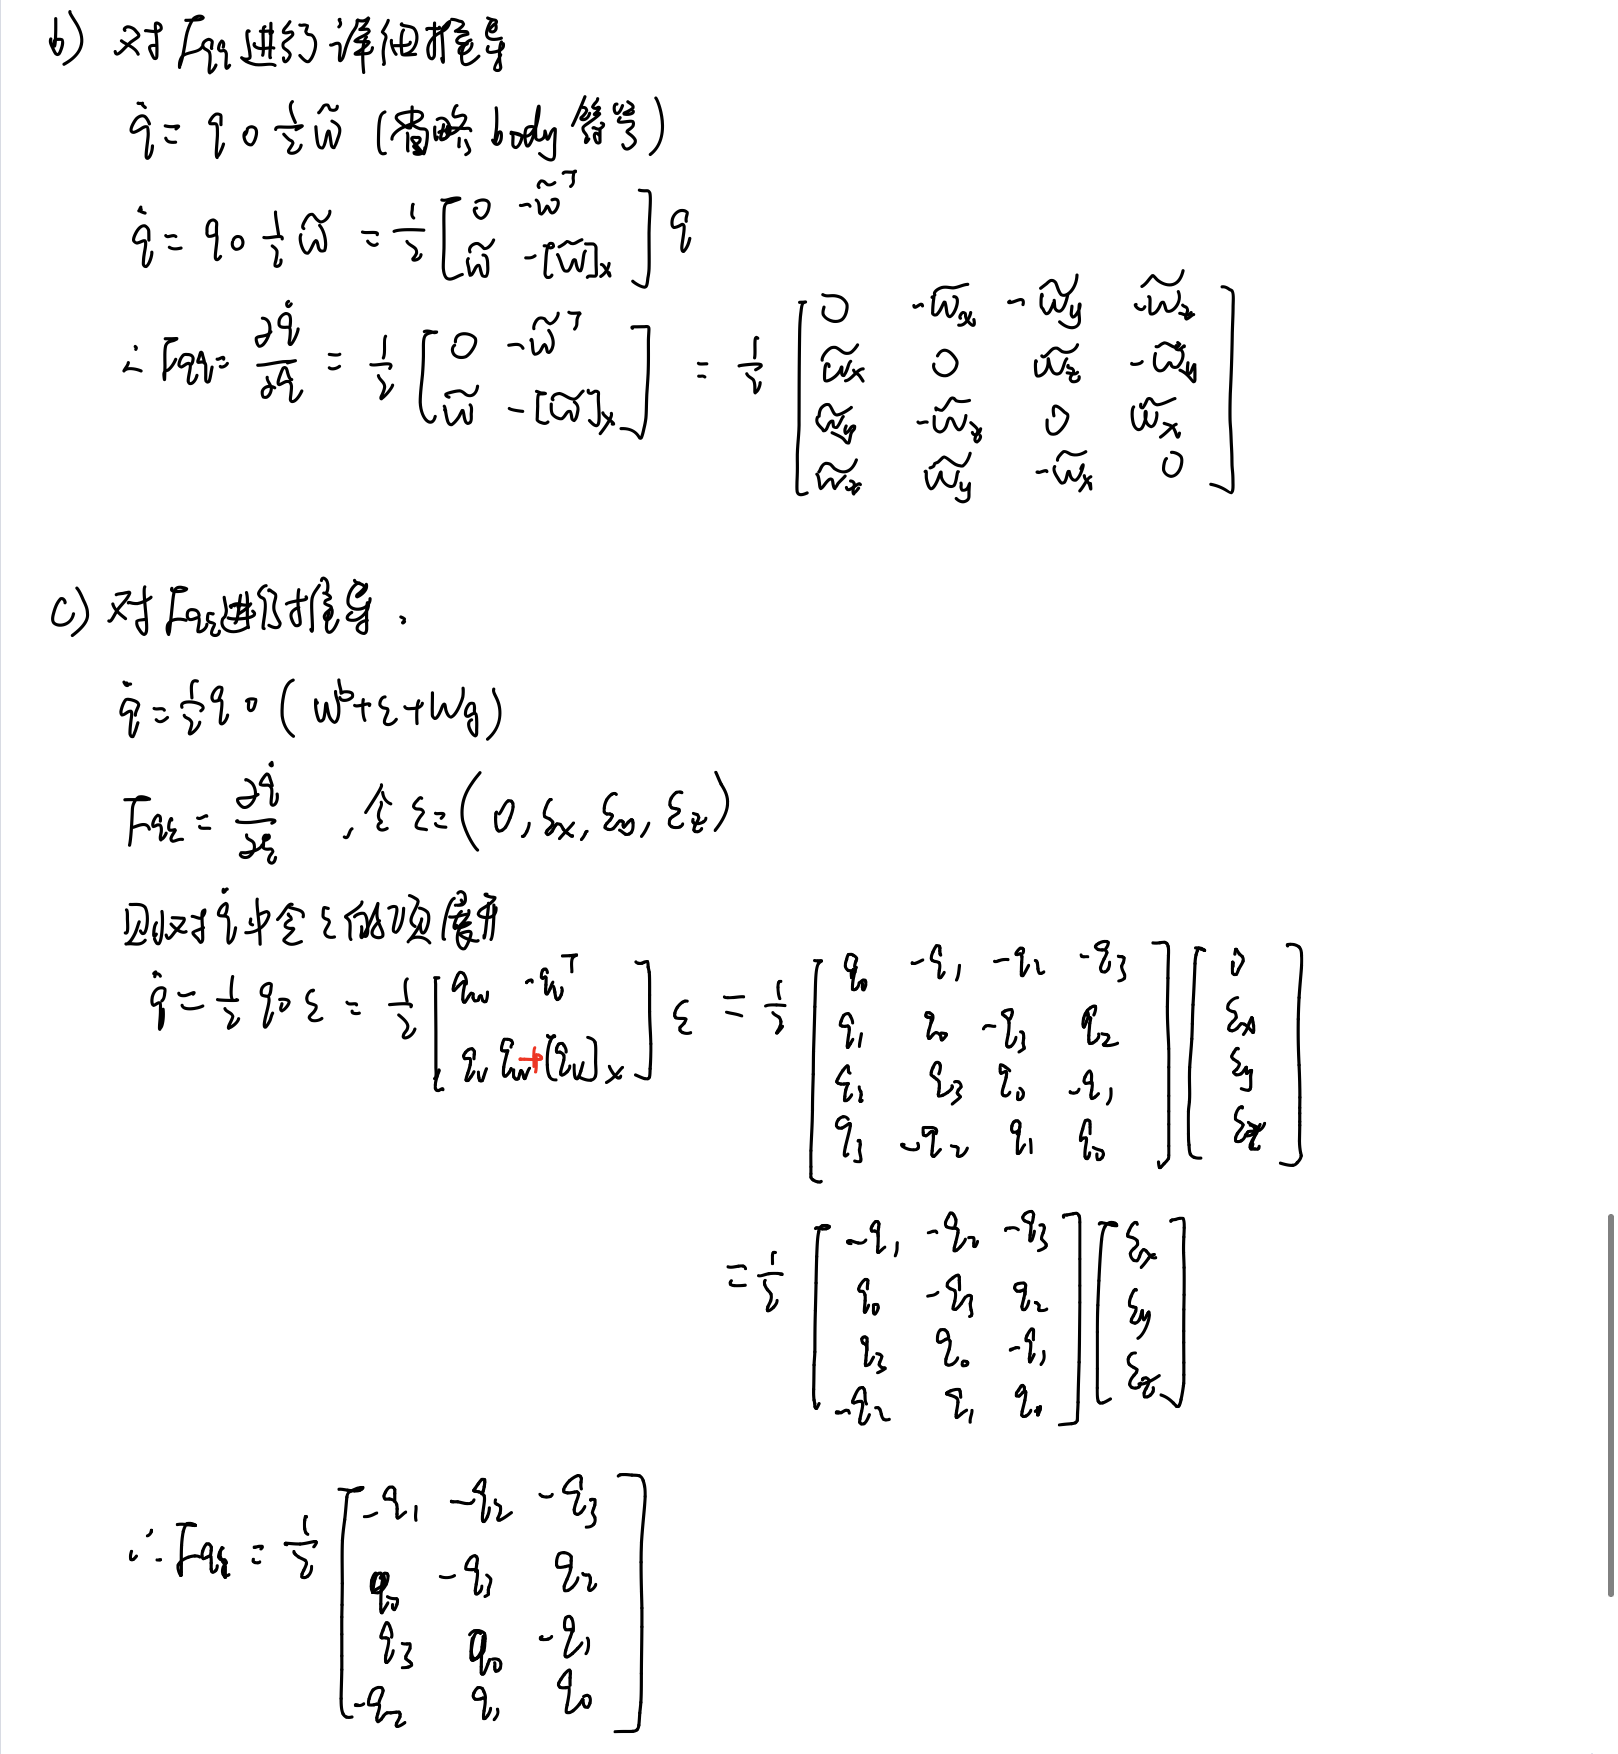 b) 对 Fqq 进行详细推导
q̇ = q ∘ ½ w̃ (省略 body 符号)
q̇ = q ∘ ½ w̃ = ½ [0 -w̃ᵀ; w̃ -[w̃]ₓ] q
∴ Fqq = ∂q̇/∂q = ½ [0 -w̃ᵀ; w̃ -[w̃]ₓ] = ½ [0 -w̃x -w̃y -w̃z; w̃x 0 w̃z -w̃y; w̃y -w̃z 0 w̃x; w̃z w̃y -w̃x 0]
c) 对 Fqε 进行推导.
q̇ = ½ q ∘ (wᵇ + ε + wg)
Fqε = ∂q̇/∂ε , 令 ε = (0, εx, εy, εz)
则对 q̇ 中含 ε 的项展开
q̇ = ½ q ∘ ε = ½ [qw -qvᵀ; qv qw+[qv]ₓ] ε = ½ [q0 -q1 -q2 -q3; q1 q0 -q3 q2; q2 q3 q0 -q1; q3 -q2 q1 q0] [0; εx; εy; εz]
= ½ [-q1 -q2 -q3; q0 -q3 q2; q3 q0 -q1; -q2 q1 q0] [εx; εy; εz]
∴ Fqε = ½ [-q1 -q2 -q3; q0 -q3 q2; q3 q0 -q1; -q2 q1 q0]